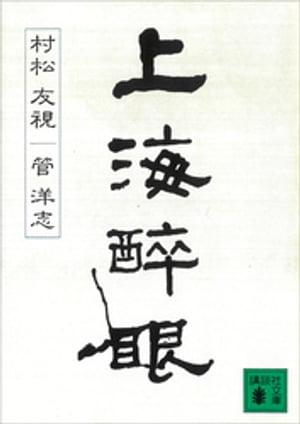 上海酔眼
村松友視
管洋志
講談社文庫